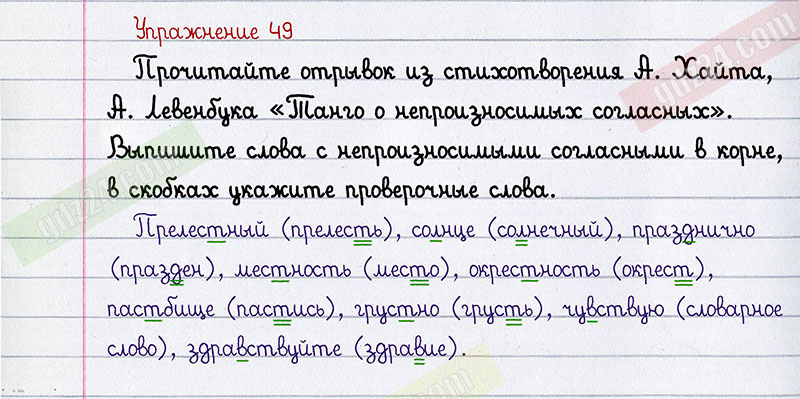 Упражнение 49
Прочитайте отрывок из стихотворения А. Хайта,
А. Левенбука «Танго о непроизносимых согласных».
Выпишите слова с непроизносимыми согласными в корне,
в скобках укажите проверочные слова.
Прелестный (прелесть), солнце (солнечный), празднично
(празден), местность (место), окрестность (окрест),
пастбище (пастись), грустно (грусть), чувствую (словарное
слово), здравствуйте (здравие).
gdz24.com
gdz24.com
gdz24.com